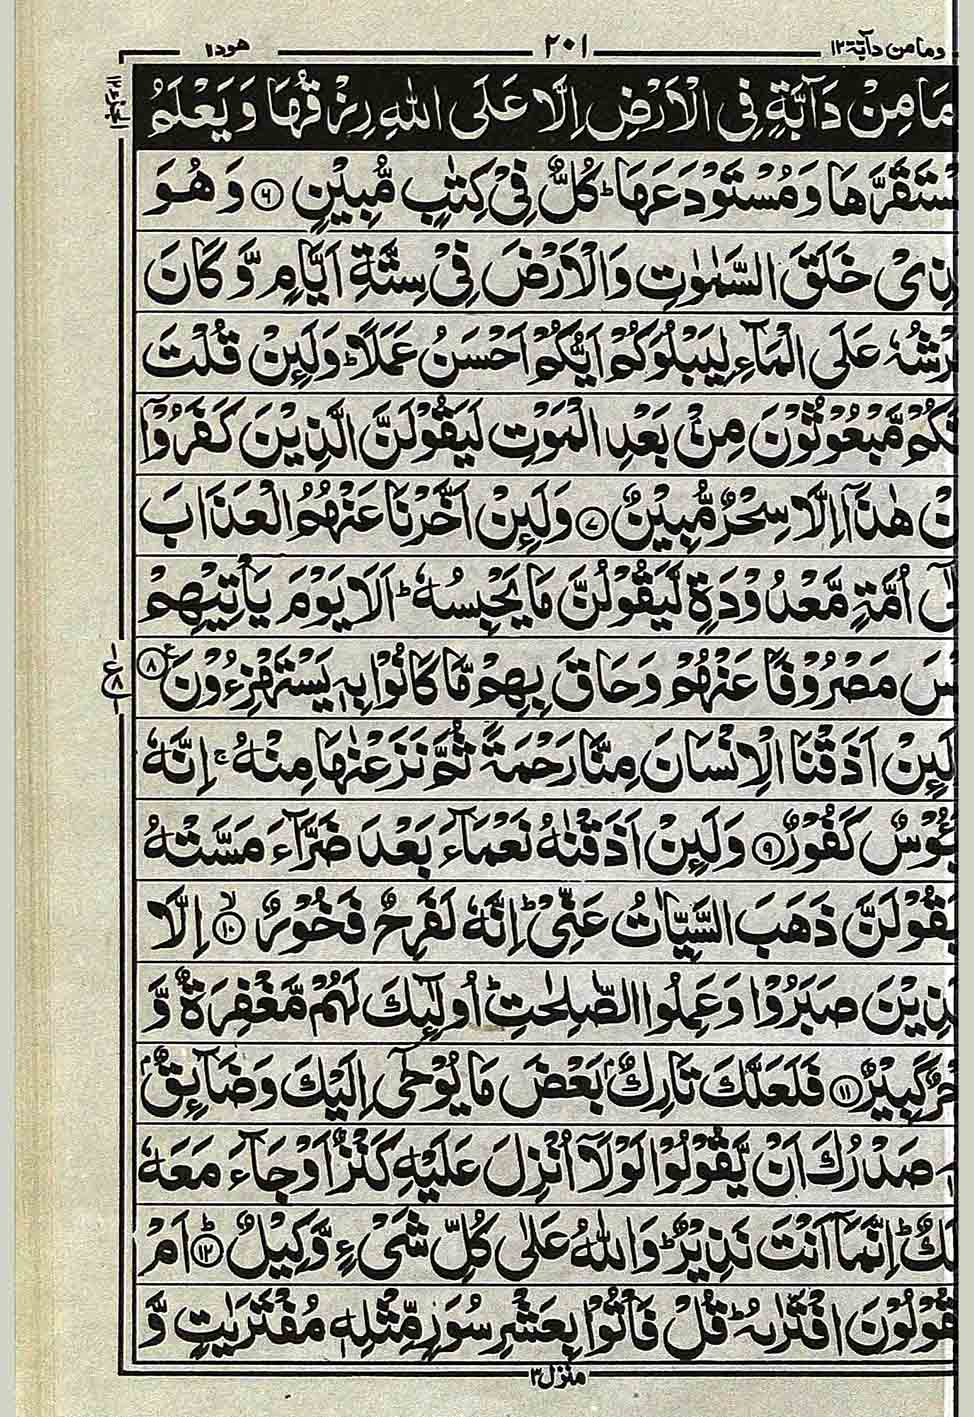 ومامن دآبة ١٢ ٢٠١ هود ١١
مَا مِنْ دَآبَّةٍ فِى الْاَرْضِ اِلَّا عَلَى اللهِ رِزْقُهَا وَيَعْلَمُ
سْتَقَرَّهَا وَمُسْتَوْدَعَهَا ؕ كُلٌّ فِىْ كِتٰبٍ مُّبِيْنٍ ۶ وَهُوَ
ذِىْ خَلَقَ السَّمٰوٰتِ وَالْاَرْضَ فِىْ سِتَّةِ اَيَّامٍ وَّكَانَ
رْشُهٗ عَلَى الْمَآءِ لِيَبْلُوَكُمْ اَيُّكُمْ اَحْسَنُ عَمَلًا ؕ وَلَئِنْ قُلْتَ
نَّكُمْ مَّبْعُوْثُوْنَ مِنْۢ بَعْدِ الْمَوْتِ لَيَقُوْلَنَّ الَّذِيْنَ كَفَرُوْۤا
نْ هٰذَاۤ اِلَّا سِحْرٌ مُّبِيْنٌ ۷ وَلَئِنْ اَخَّرْنَا عَنْهُمُ الْعَذَابَ
لٰٓى اُمَّةٍ مَّعْدُوْدَةٍ لَّيَقُوْلُنَّ مَا يَحْبِسُهٗ ؕ اَلَا يَوْمَ يَاْتِيْهِمْ
سَ مَصْرُوْفًا عَنْهُمْ وَحَاقَ بِهِمْ مَّا كَانُوْا بِهٖ يَسْتَهْزِءُوْنَ ۸
لَئِنْ اَذَقْنَا الْاِنْسَانَ مِنَّا رَحْمَةً ثُمَّ نَزَعْنٰهَا مِنْهُ ۚ اِنَّهٗ
ـُٔوْسٌ كَفُوْرٌ ۹ وَلَئِنْ اَذَقْنٰهُ نَعْمَآءَ بَعْدَ ضَرَّآءَ مَسَّتْهُ
يَقُوْلَنَّ ذَهَبَ السَّيِّاٰتُ عَنِّىْ ؕ اِنَّهٗ لَفَرِحٌ فَخُوْرٌ ۱۰ اِلَّا
ذِيْنَ صَبَرُوْا وَعَمِلُوا الصّٰلِحٰتِ ؕ اُولٰٓئِكَ لَهُمْ مَّغْفِرَةٌ وَّ
جْرٌ كَبِيْرٌ ۱۱ فَلَعَلَّكَ تَارِكٌۢ بَعْضَ مَا يُوْحٰٓى اِلَيْكَ وَضَآئِقٌۢ
هٖ صَدْرُكَ اَنْ يَّقُوْلُوْا لَوْلَاۤ اُنْزِلَ عَلَيْهِ كَنْزٌ اَوْ جَآءَ مَعَهٗ
لَكٌ ؕ اِنَّمَاۤ اَنْتَ نَذِيْرٌ ؕ وَاللهُ عَلٰى كُلِّ شَىْءٍ وَّكِيْلٌ ؕ ۱۲ اَمْ
قُوْلُوْنَ افْتَرٰىهُ ؕ قُلْ فَاْتُوْا بِعَشْرِ سُوَرٍ مِّثْلِهٖ مُفْتَرَيٰتٍ وَّ
منزل ۳